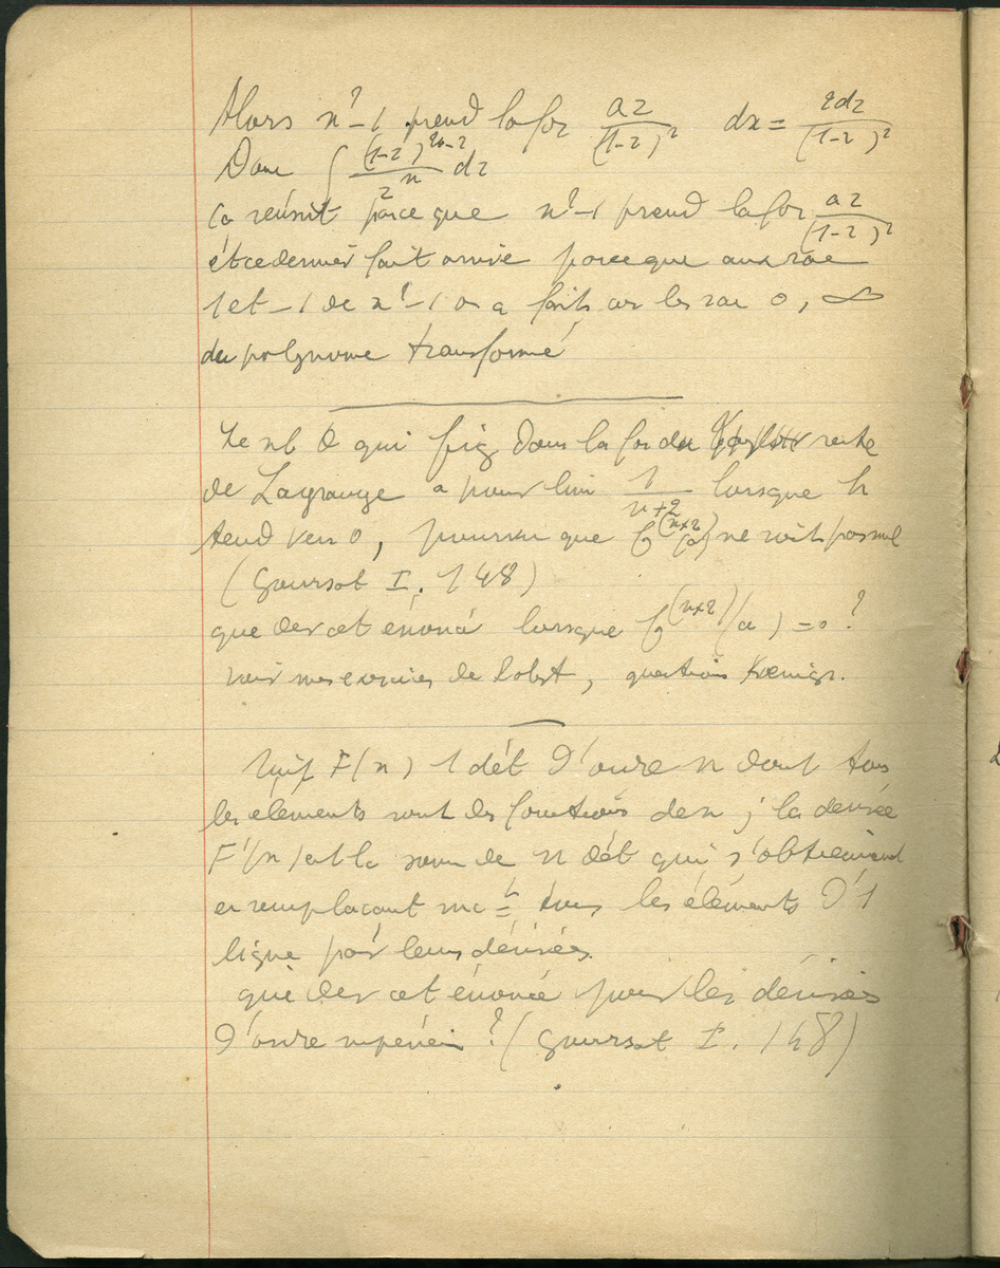 Alors x²-1 prend la for az/(1-z)² dx = 2dz/(1-z)²
Donc ∫ (1-z)^{2n-2}/z^n dz
ça réussit parce que x²-1 prend la for az/(1-z)²
et ce dernier fait arrive parce que aux rac
1 et -1 de x²-1 on a fait cor les rac 0, ∞
du polynome transformé
Le nb θ qui fig dans la for du reste
de Lagrange a pour lim 1/n+2 lorsque h
tend vers 0, pourvu que f^(n+2)(a) ne soit pas nul
(Goursat I. 148)
que dev cet énoncé lorsque f^(n+2)(a) = 0 ?
voir mes exercices de , questions Kœnigs.
Soit F(x) 1 dét d'ordre n dont tous
les elements sont des fonctions de x ; la dérivée
F'(x) est la som de n dét qui s'obtiennent
en remplaçant tous les éléments d'1
ligne par leurs dérivées.
que dev cet énoncé pour les dérivées
d'ordre supérieur ? (Goursat I. 148)